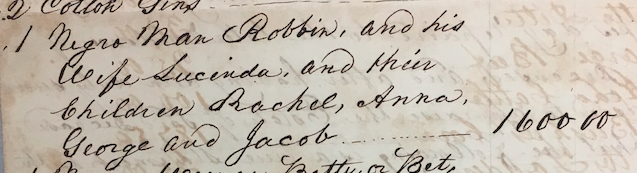 2 Cotton Gins
1 Negro Man Robbin, and his
Wife Lucinda, and their
Children Rachel, Anna,
George and Jacob 1600 00
Betty or Bet,